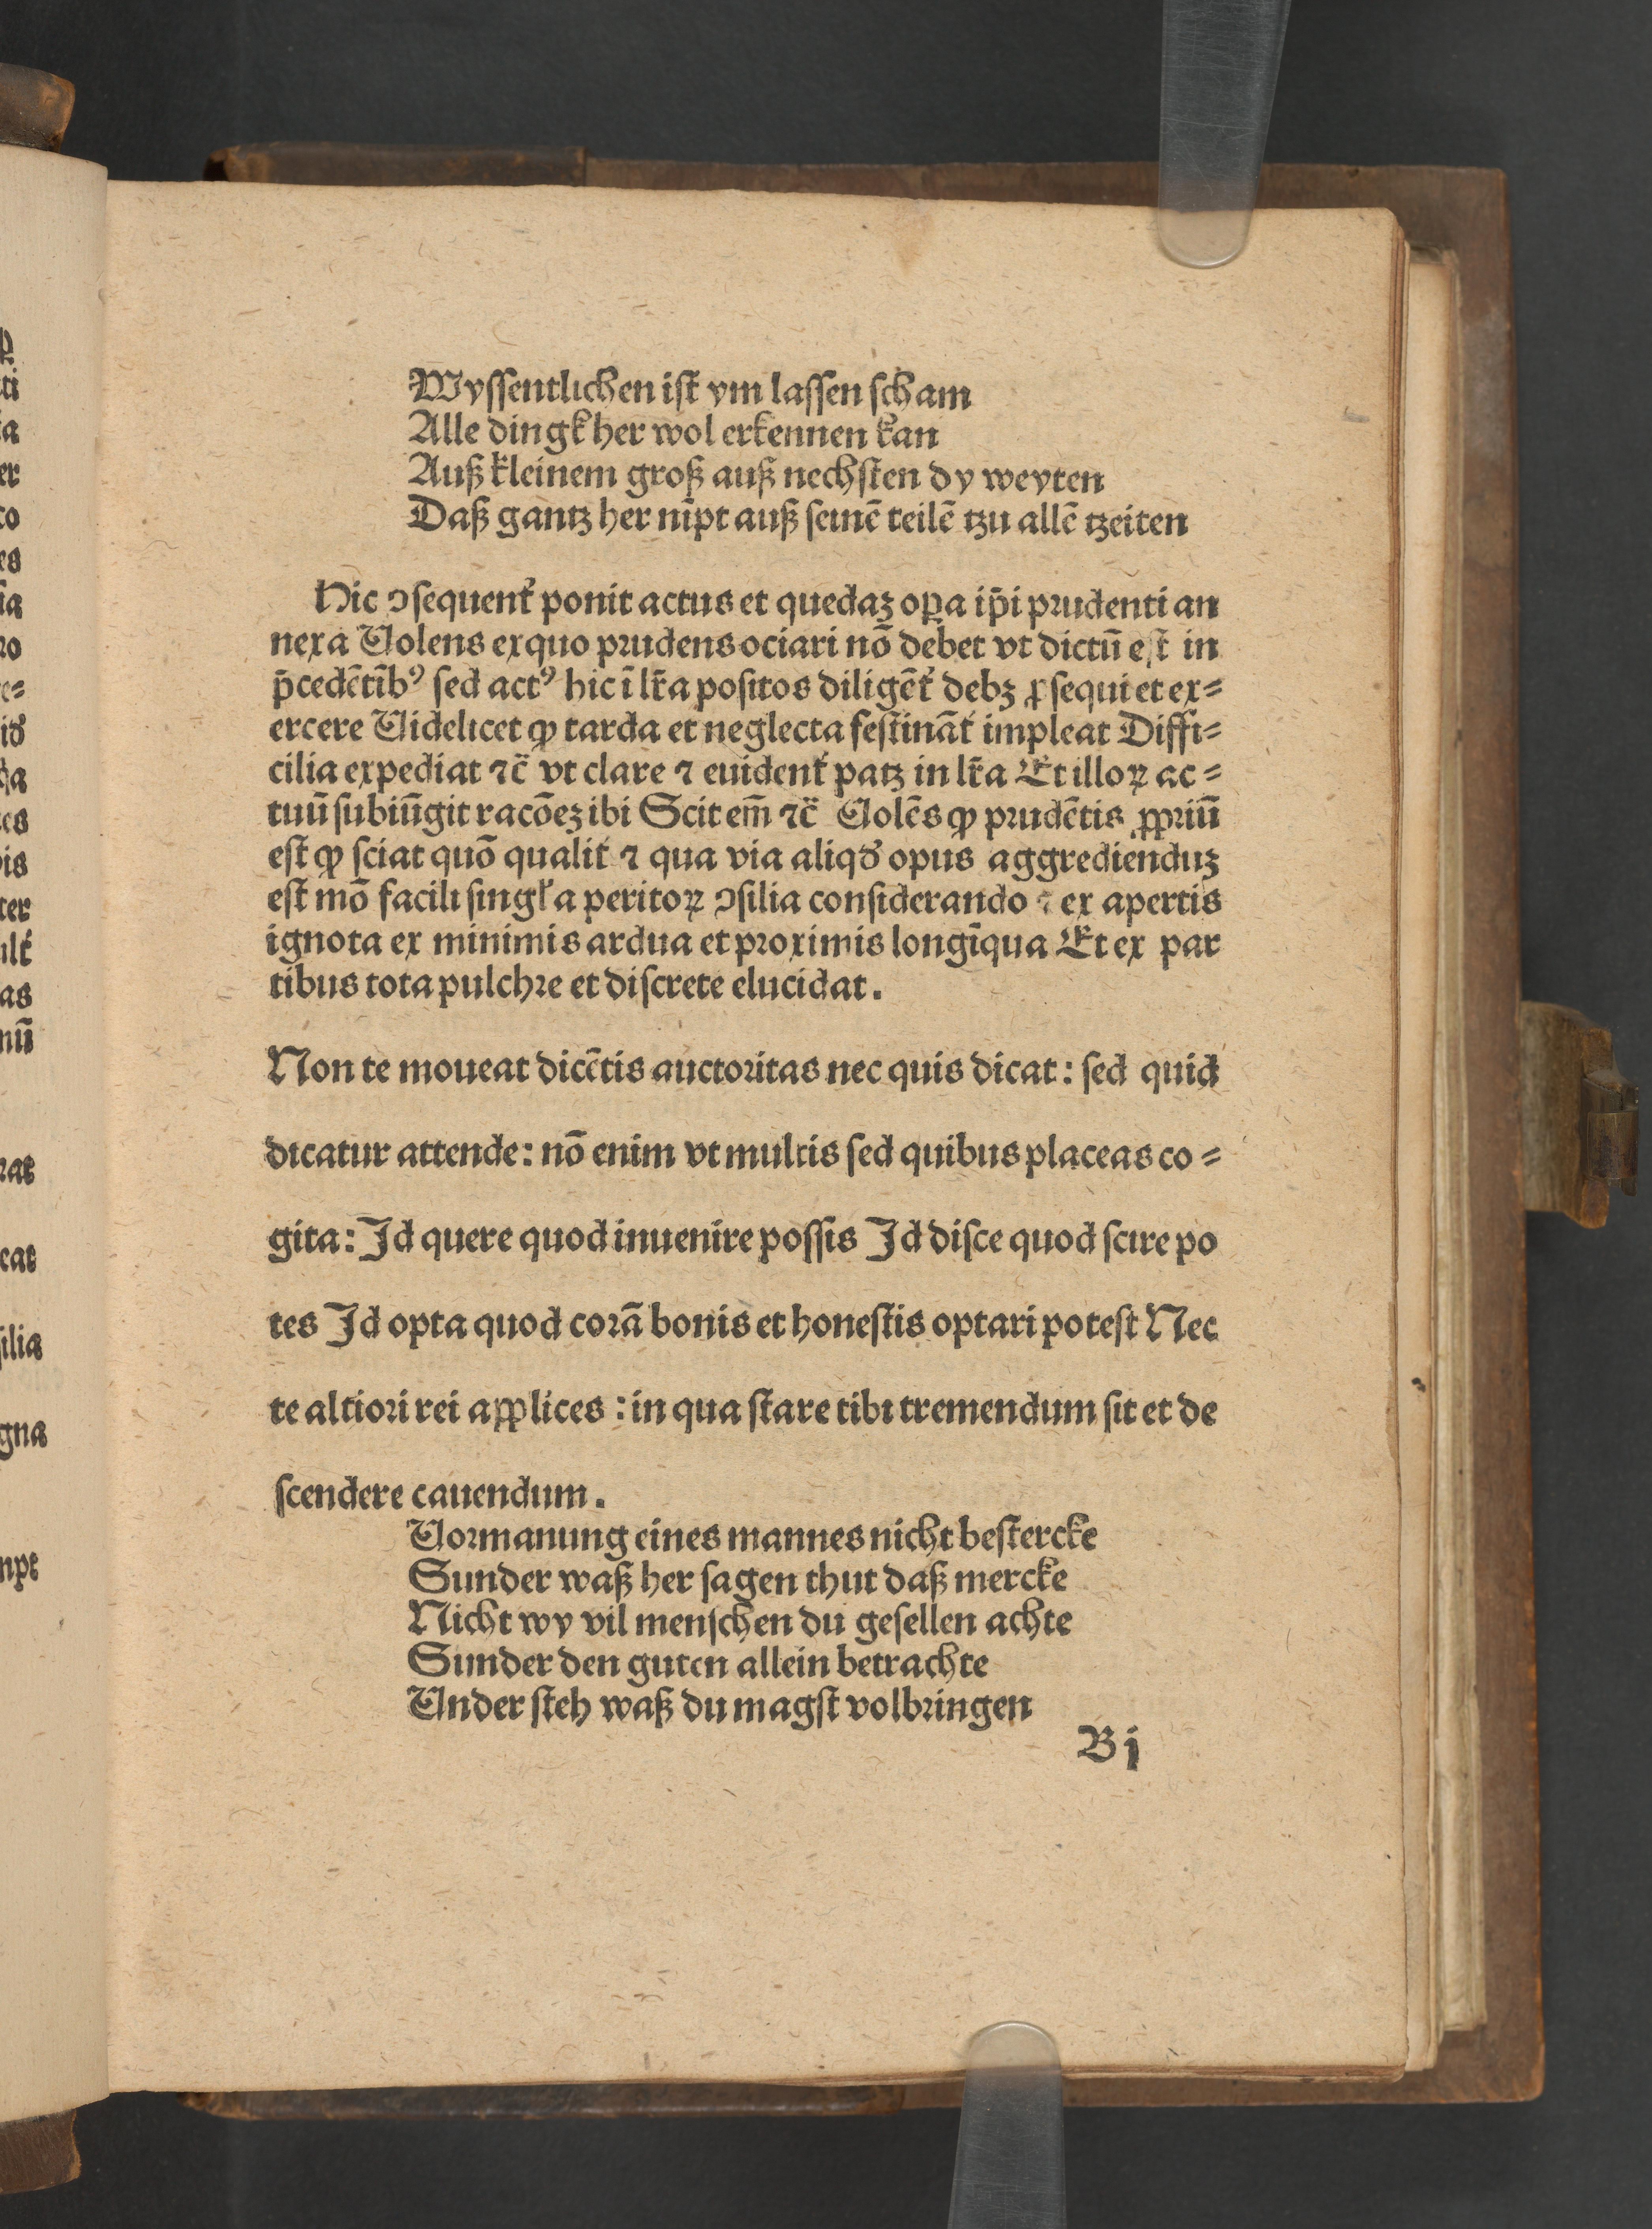 Wyſſentlichen iſt ym laſſen ſcham
Alle dingk her wol erkennen kan
Auß kleinem groß auß nechſten dy weyten
Daß gantz her nīpt auß ſeinē teilē tzu allē tzeiten
Hic ↄſequent᷑ ponit actus et quedaꝫ oꝑa ip̄i prudenti an
nexa Uolens exquo prudens ociari nō debet vt dictū eſt in
p̄cedētibꝰ ſed actꝰ hic ī lr̄a poſitos diligēt᷑ debꝫ ꝓſequi et ex⸗
ercere Uidelicet ꝙ tarda et neglecta feſtināt᷑ impleat Diffi⸗
cilia expediat ⁊c̄ vt clare ⁊ euident᷑ patꝫ in lr̄a Et illoꝝ ac⸗
tuū ſubiūgit racōeꝫ ibi Scit em̄ ⁊c̄ Uolēs ꝙ prudētis ꝓpriū
eſt ꝙ ſciat quō qualit᷑ ⁊ qua via aliqd᷑ opus aggredienduꝫ
eſt mō facili ſingl᷑a peritoꝝ ↄſilia conſiderando ⁊ ex apertis
ignota ex minimis ardua et proximis longīqua Et ex par
tibus tota pulchre et diſcrete elucidat.
Non te moueat dicētis auctoritas nec quis dicat: ſed quid
dicatur attende: nō enim vt multis ſed quibus placeas co⸗
gita: Id quere quod inuenire poſſis Id diſce quod ſcire po
tes Id opta quod corā bonis et honeſtis optari poteſt Nec
te altiori rei applices : in qua ſtare tibi tremendum ſit et de
ſcendere cauendum.
Uormanung eines mannes nicht beſtercke
Sunder waß her ſagen thut daß mercke
Nicht wy vil menſchen du geſellen achte
Sunder den guten allein betrachte
Under ſteh waß du magſt volbringen
B j